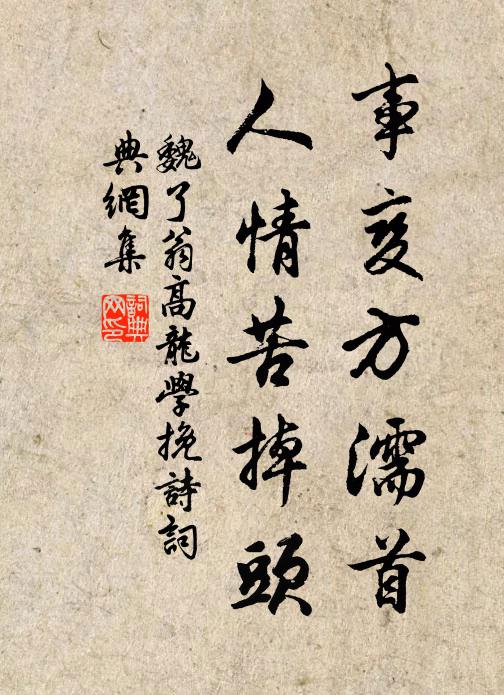 事变方濡首
人情苦掉頭
魏了翁高龍學挽詩詞
典網集
詞典
网印